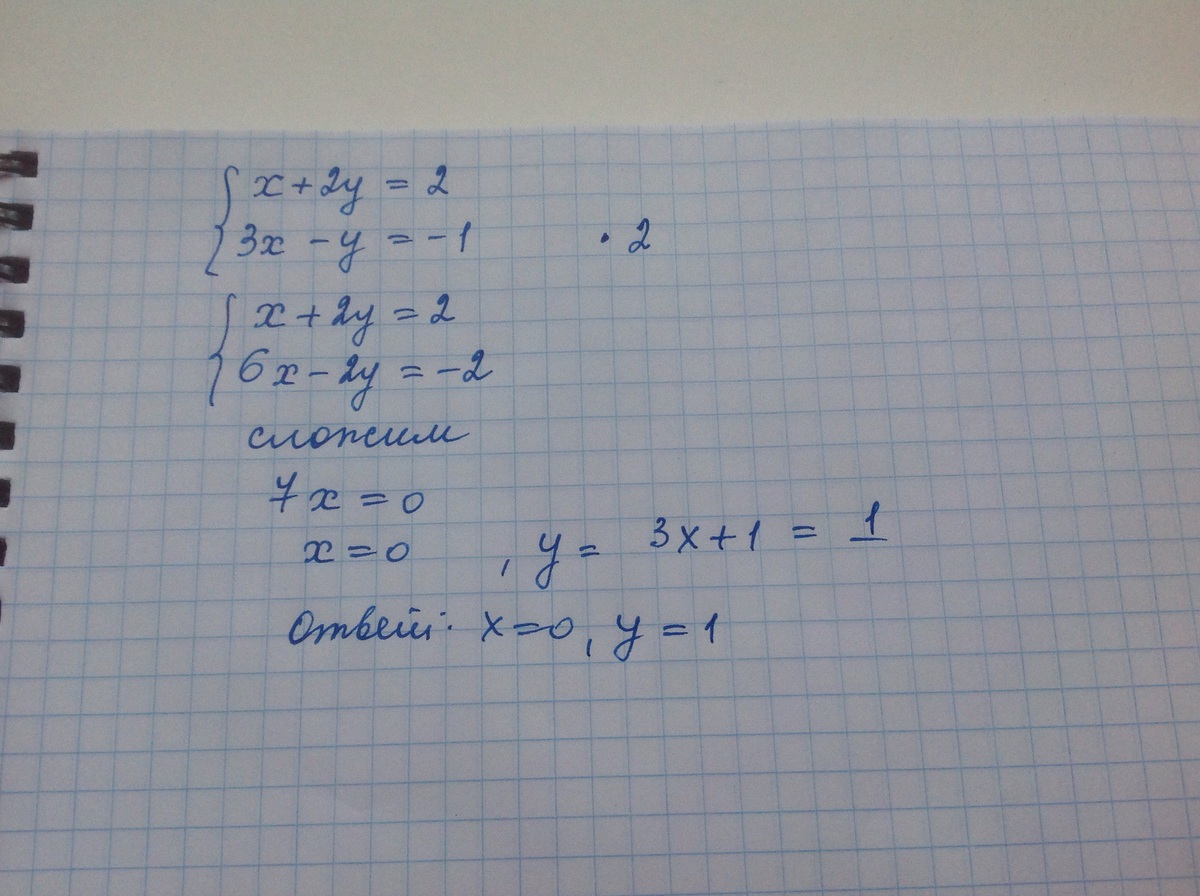 x + 2y = 2
3x - y = -1 · 2
x + 2y = 2
6x - 2y = -2
сложим
7x = 0
x = 0 , y = 3x + 1 = 1
Ответ: x = 0, y = 1